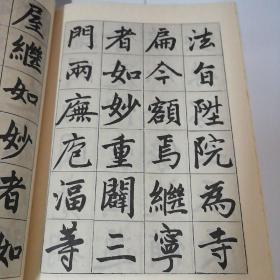 法自陞院為寺
扁今額焉繼寧
者如妙重闢三
門兩廡庖湢等
屋繼如妙者如